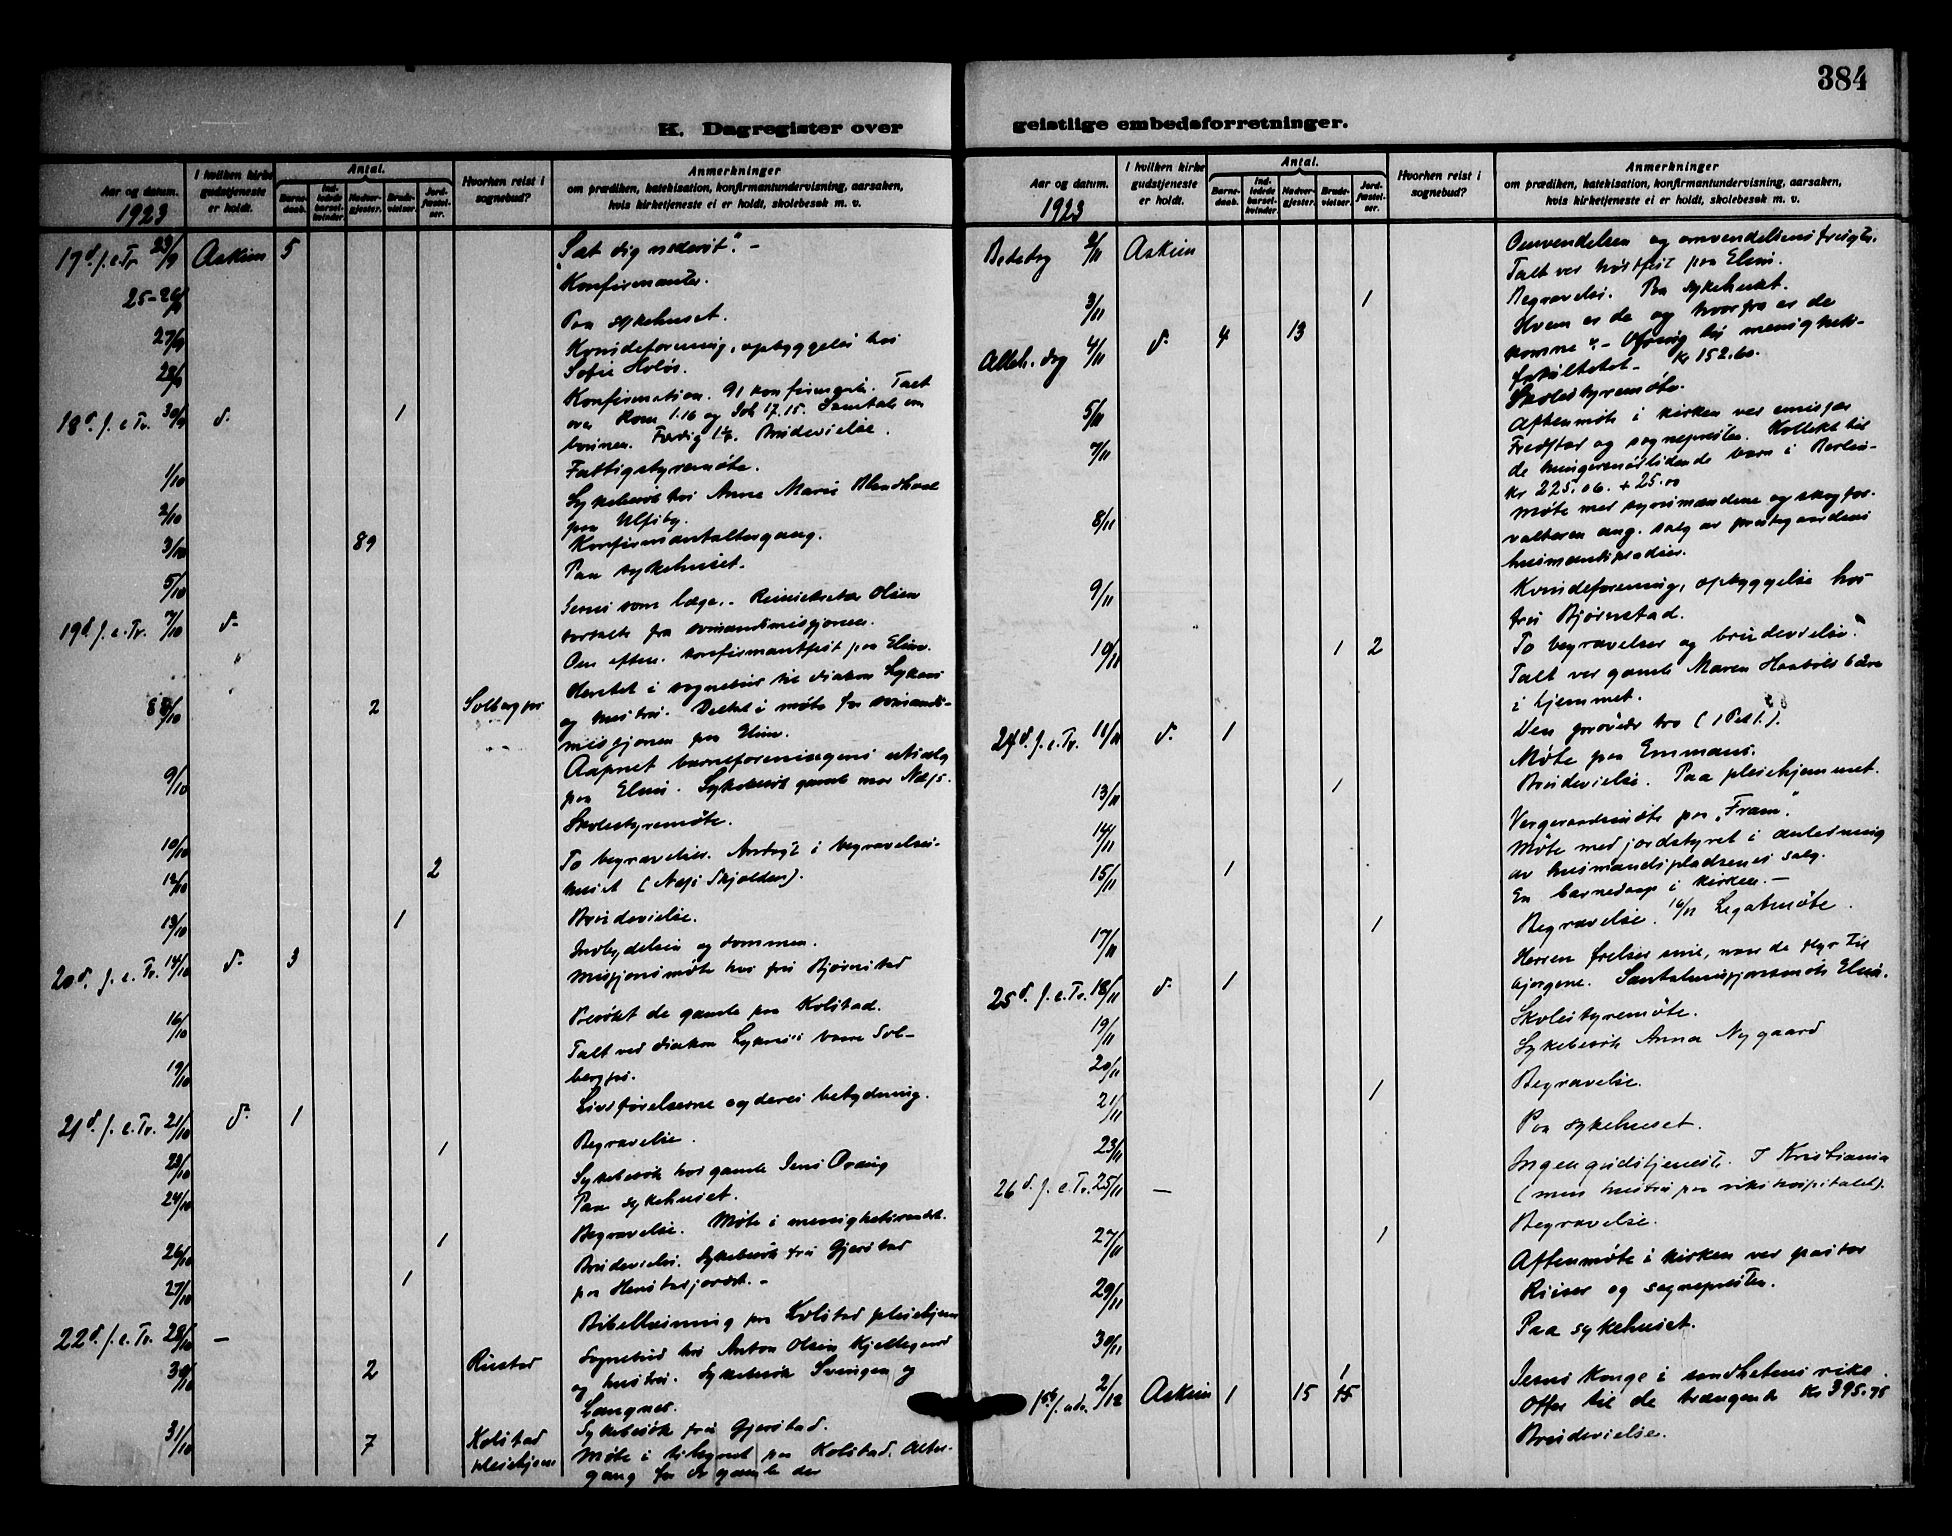 384
K. Dagregister over
geistlige embedsforretninger.
Aar og datum.
1923
I hvilken kirke gudstjeneste er holdt.
Antal.
Barne-daab.
Ind-ledede barsel-kvinder.
Nadver-gjester.
Brude-vielser.
Jord-fæstel-ser.
Hvorhen reist i sognebud?
Anmerkninger
om prædiken, katekisation, konfirmantundervisning, aarsaken,
hvis kirketjeneste ei er holdt, skolebesøk m. v.
17d. f. e. Tr. 23/9 Askim 5
"Sæt dig nederst". -
25-26/9 Konfirmanter.
27/9 Paa sykehuset.
28/9 Kvindeforening, opbyggelse hos
Sofie Holøs.
18d. f. e. Tr. 30/9 d. 1 Konfirmation. 91 konfirmanter. Talt
over Rom 1.16 og Joh 17.15. Samtale om
Færdig 1½. Brudevielse.
1/10 Fattigstyremøte.
2/10 Sykebesøk hos Anna Marie
paa Ulfsby.
3/10 89 Konfirmantaltergang.
5/10 Paa sykehuset.
19d. f. e. Tr. 7/10 d. Jesus som læge. - Reisesekretær Olsen
fortalte fra sømandsmisjonen.
Om eftm. konfirmantfest paa Elim.
8/10 2 Solberg
i sognebud til diakon
og hustru. Deltat i møte for sømands-
misjonen paa Elim.
9/10 Aapnet barneforeningens utsalg
paa Elim. Sykebesøk gamle mor Næs.
10/10 Skolestyremøte.
12/10 2 To begravelser. Andagt i begravelses-
huset (Næs Skjolden).
13/10 1 Brudevielse.
20d. f. e. Tr. 14/10 d. 3 Indbydelsen og dommen.
Misjonsmøte hos fru Bjørnstad
16/10 Besøkt de gamle paa Kolstad.
19/10 Talt ved diakon baare Sol-
berg
21d. f. e. Tr. 21/10 d. 1 Livsførelserne og deres betydning.
23/10 1 Begravelse.
24/10 Sykebesøk hos gamle Jens
Paa sykehuset.
26/10 1 Begravelse. Møte i menighetsraadet.
27/10 1 Brudevielse. Sykebesøk fru Gjerstad
paa
22d. f. e. Tr. 28/10 - Bibellæsning paa Kolstad pleiehjem
30/10 2 Riistad Sognebud hos Anton Olsen
og hustru. Sykebesøk Svingen og
Langnes.
31/10 7 Kolstad pleiehjem Sykebesøk fru Gjerstad.
Møte i tilsynet paa Kolstad. Alter-
gang for de gamle der
Aar og datum.
1923
I hvilken kirke gudstjeneste er holdt.
Antal.
Barne-daab.
Ind-ledede barsel-kvinder.
Nadver-gjester.
Brude-vielser.
Jord-fæstel-ser.
Hvorhen reist i sognebud?
Anmerkninger
om prædiken, katekisation, konfirmantundervisning, aarsaken,
hvis kirketjeneste ei er holdt, skolebesøk m. v.
Botsdag 2/11 Askim Omvendelsen og omvendelsens frugter.
Talt ved høstfest paa Elim.
3/11 1 Begravelse. Paa sykehuset.
Alleh. dag 4/11 d. 4 13 Hvem er de og hvorfra er de
komne? - Ofring til menighets-
fakultetet - Kr 152.60.
5/11 Skolestyremøte.
7/11 Aftenmøte i kirken ved emissær
Fredstad og sognepresten. Kollekt til
de hungersnødlidende barn i Berlin -
Kr 225.06. + 25.00
8/11 Møte med tyrimændene og skogfor-
valteren ang. salg av prestegaardens
husmandspladser.
9/11 Kvindeforening, opbyggelse hos
fru Bjørnstad.
10/11 1 2 To begravelser og brudevielse.
Talt ved gamle Maren baare
i hjemmet.
24d. f. e. Tr. 11/11 d. 1 Den prøvede tro (1 Pet 1.).
Møte paa Emmaus.
13/11 1 Brudevielse. Paa pleiehjemmet.
14/11 Vergeraadsmøte paa "Fram".
15/11 1 Møte med jordstyret i anledning
av husmandspladsenes salg.
En barnedaap i kirken. -
17/11 1 Begravelse. 16/11 Legatmøte.
25d. f. e. Tr. 18/11 d. 1 Herren frelser sine, naar de flyr til
bjergene. Santalmisjonsmøte Elim.
19/11 Skolestyremøte.
20/11 Sykebesøk Anna Nygaard
21/11 1 Begravelse.
23/11 Paa sykehuset.
26d. f. e. Tr. 25/11 - Ingen gudstjeneste. I Kristiania
(min hustru paa rikshospitalet).
27/11 1 Begravelse.
29/11 Aftenmøte i kirken ved pastor
Riiser og sognepresten.
30/11 Paa sykehuset.
1ste s. adv. 2/12 Askim 1 15 1 Jesus Konge i sandhetens rike.
Offer til de trængende Kr 395.75
Brudevielse.